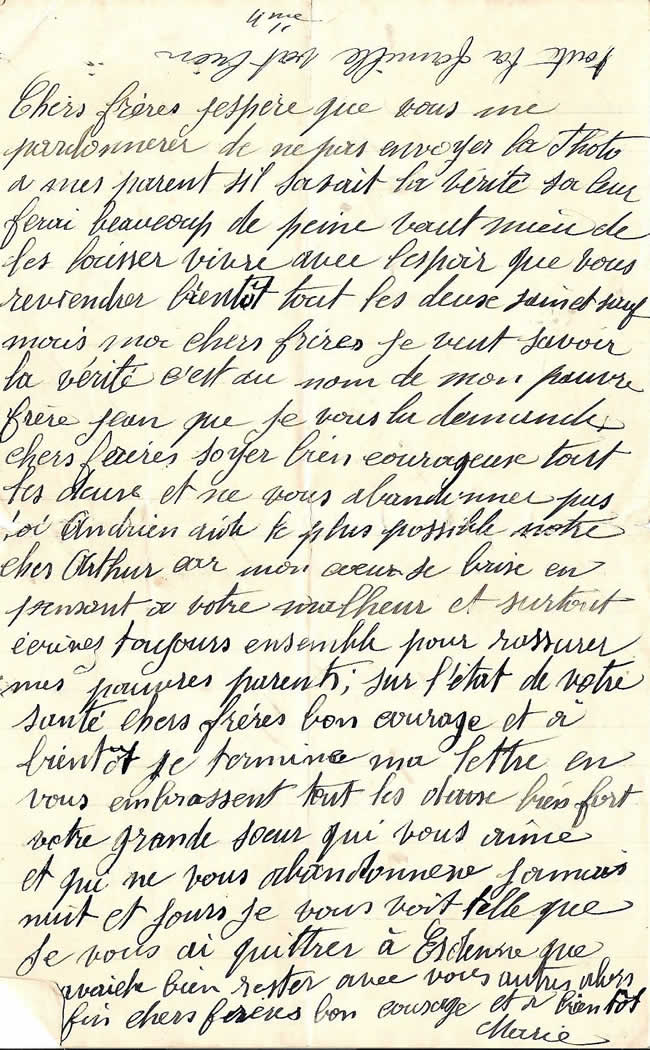 4me
toute la famille vat bien
Chers fréres jespere que vous me
pardonnerér de ne pas envoyer la Photo
a mes parent sil savait la vérité sa leur
ferai beaucoup de peine vaut mieu de
les laisser vivre avec lespoir que vous
reviendrer bientôt tout les deuse sain et sauf
mais moi chers fréres je veut savoir
la vérité c'est au nom de mon pauvre
frére jean que je vous la demande
chers fréres soyer bien courageuse tout
les deuse et ne vous abandonner pas
toi Andrien aide le plus possible notre
cher Arthur car mon coeur se brise en
pensant a votre malheur et surtout
écrivez toujours ensemble pour rassurer
mes pauvres parents; sur l'état de votre
santé chers fréres bon courage et à
bientôt je termine ma lettre en
vous embrassent tout les deuse bien fort
votre grande soeur qui vous aime
et qui ne vous abandonnera jamais
nuit et jours je vous voit telle que
je vous ai quittrer à que
bien rester avec vous autres alors
fin chers fréres bon courage et a bientot
Marie